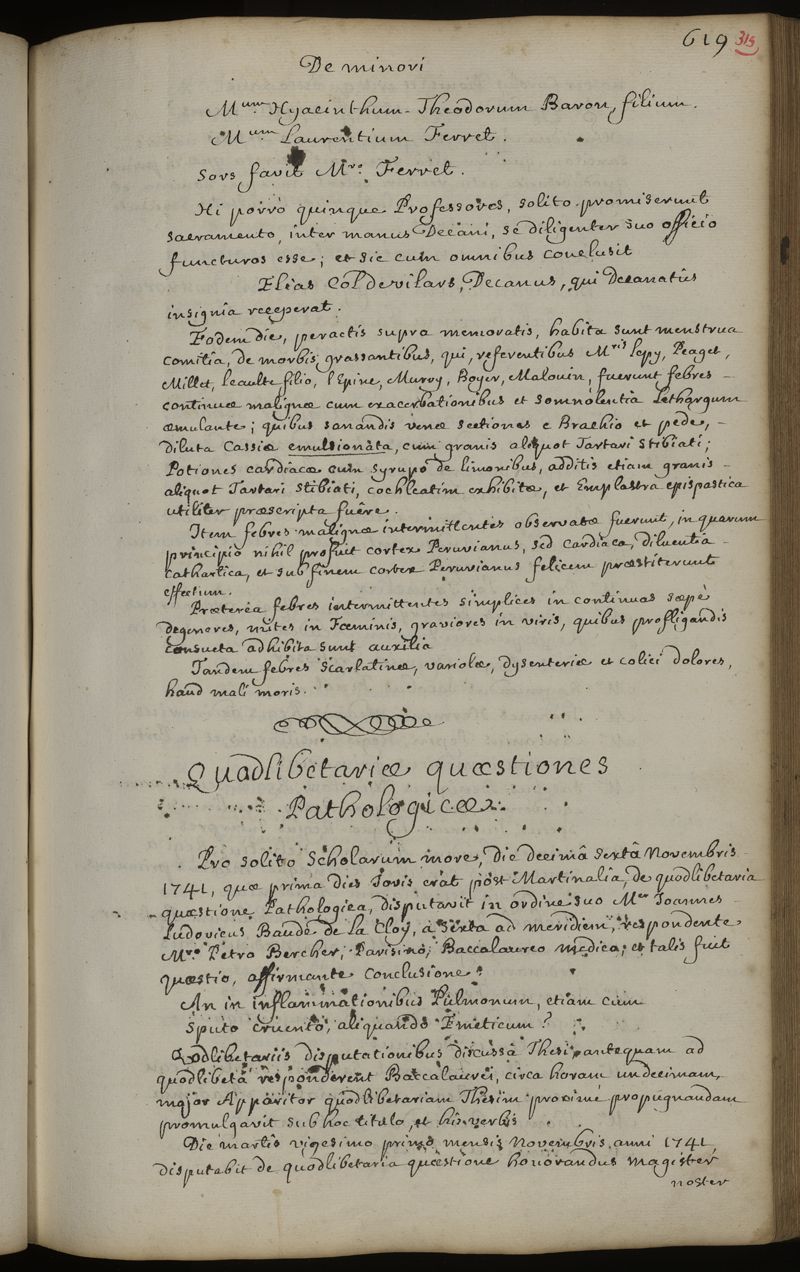 619 315
De minori
M.um Hyacinthum-Theodorum Baron, filium.
M.um Laurentium Ferret.
Sors favit M.ro Ferret.
Hi porrò quinque Professores, solito promiserunt
sacramento, inter manus Decani, se diligenter suo officio
functuros esse; et sic cum omnibus conclusit
Elias Col de vilars, Decanus, qui Decanatûs
insignia receperat.
Eodem die, peractis supra memoratis, habita sunt menstrua
comitia, de morbis grassantibus, qui, referentibus M.ris lepy, Peaget,
Millet, lecaulte filio, l'Epine, Muroy, Boyer, Malouin, fuerunt febres
continuæ malignæ cum exacerbationibus et somnolentia Lethargum
æmulante; quibus sanandis venæ sectiones e Brachio et pede,
diluta Cassiæ emulsionata, cum granis aliquot Tartari Stibiati;
Potiones cardiacæ cum syrupo de limonibus, additis etiam granis
aliquot Tartari stibiati, cochleatim exhibitæ, et Emplastra epispastica
utiliter præscripta fuêre.
Item febres malignæ intermittentes observatæ fuerunt, in quarum
principio nihil profuit cortex Peruvianus, sed cardiaca, diluentia
cathartica, et sub finem cortex Peruvianus felicem præstiterunt
effectum.
Præterea febres intermittentes simplices in continuas sæpè
degeneres, mites in Fœminis, graviores in viris, quibus profligandis
consueta adhibita sunt auxilia
Tandem febres scarlatinæ, variolæ, dysenteriæ et colici dolores,
haud mali moris.
Quodlibetariæ quæstiones
Pathologicæ
Pro solito Scholarum more, die decimâ sextâ Novembris
1741, quæ prima dies Jovis erat post Martinalia, de quodlibetaria
quæstione Pathologica, disputavit in ordine suo M.er Joannes
Ludovicus Baude de La Cloy, a sexta ad meridiem, respondente
M.ro Petro Bercher, Parisino, Baccalaureo medico; et talis fuit
quæstio, affirmante conclusione:
An in inflammationibus Pulmonum, etiam cum
Sputo cruento, aliquando Emeticum?
Quodlibetariis disputationibus discussâ Thesi, antequam ad
quodlibeta responderent Baccalaurei, circa horam undecimam,
major Apparitor quodlibetariam Thesim proximè propugnandam
promulgavit sub hoc titulo, et his verbis
Die martis vigesimo primo mensis Novembris anni 1741
disputabit de quodlibetaria quæstione honorandus magister
noster